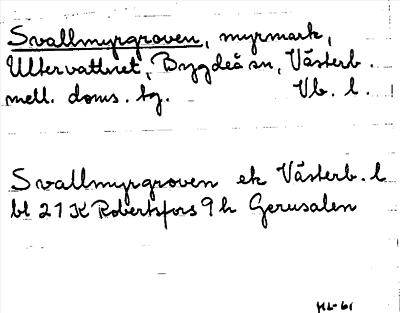 Svallmyrgroven, myrmark,
Ultervattnet, Bygdeå sn, Västerb.
mell. doms. tg. Vb. l.
Svallmyrgroven ek Västerb. l
bl 21 K Robertsfors 9 h Gerusalen
HL-61